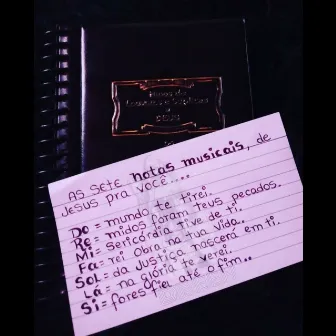 Hinos de
Louvores e Súplicas
a
DEUS
As sete notas musicais, de
Jesus pra você....
Do= mundo te tirei.
Re= midos foram teus pecados.
Mi= Sericórdia tive de ti.
Fa= rei Obra na tua vida.
Sol= da justiça nascerá em ti.
Lá= na glória te verei.
Si= fores fiel até o fim..